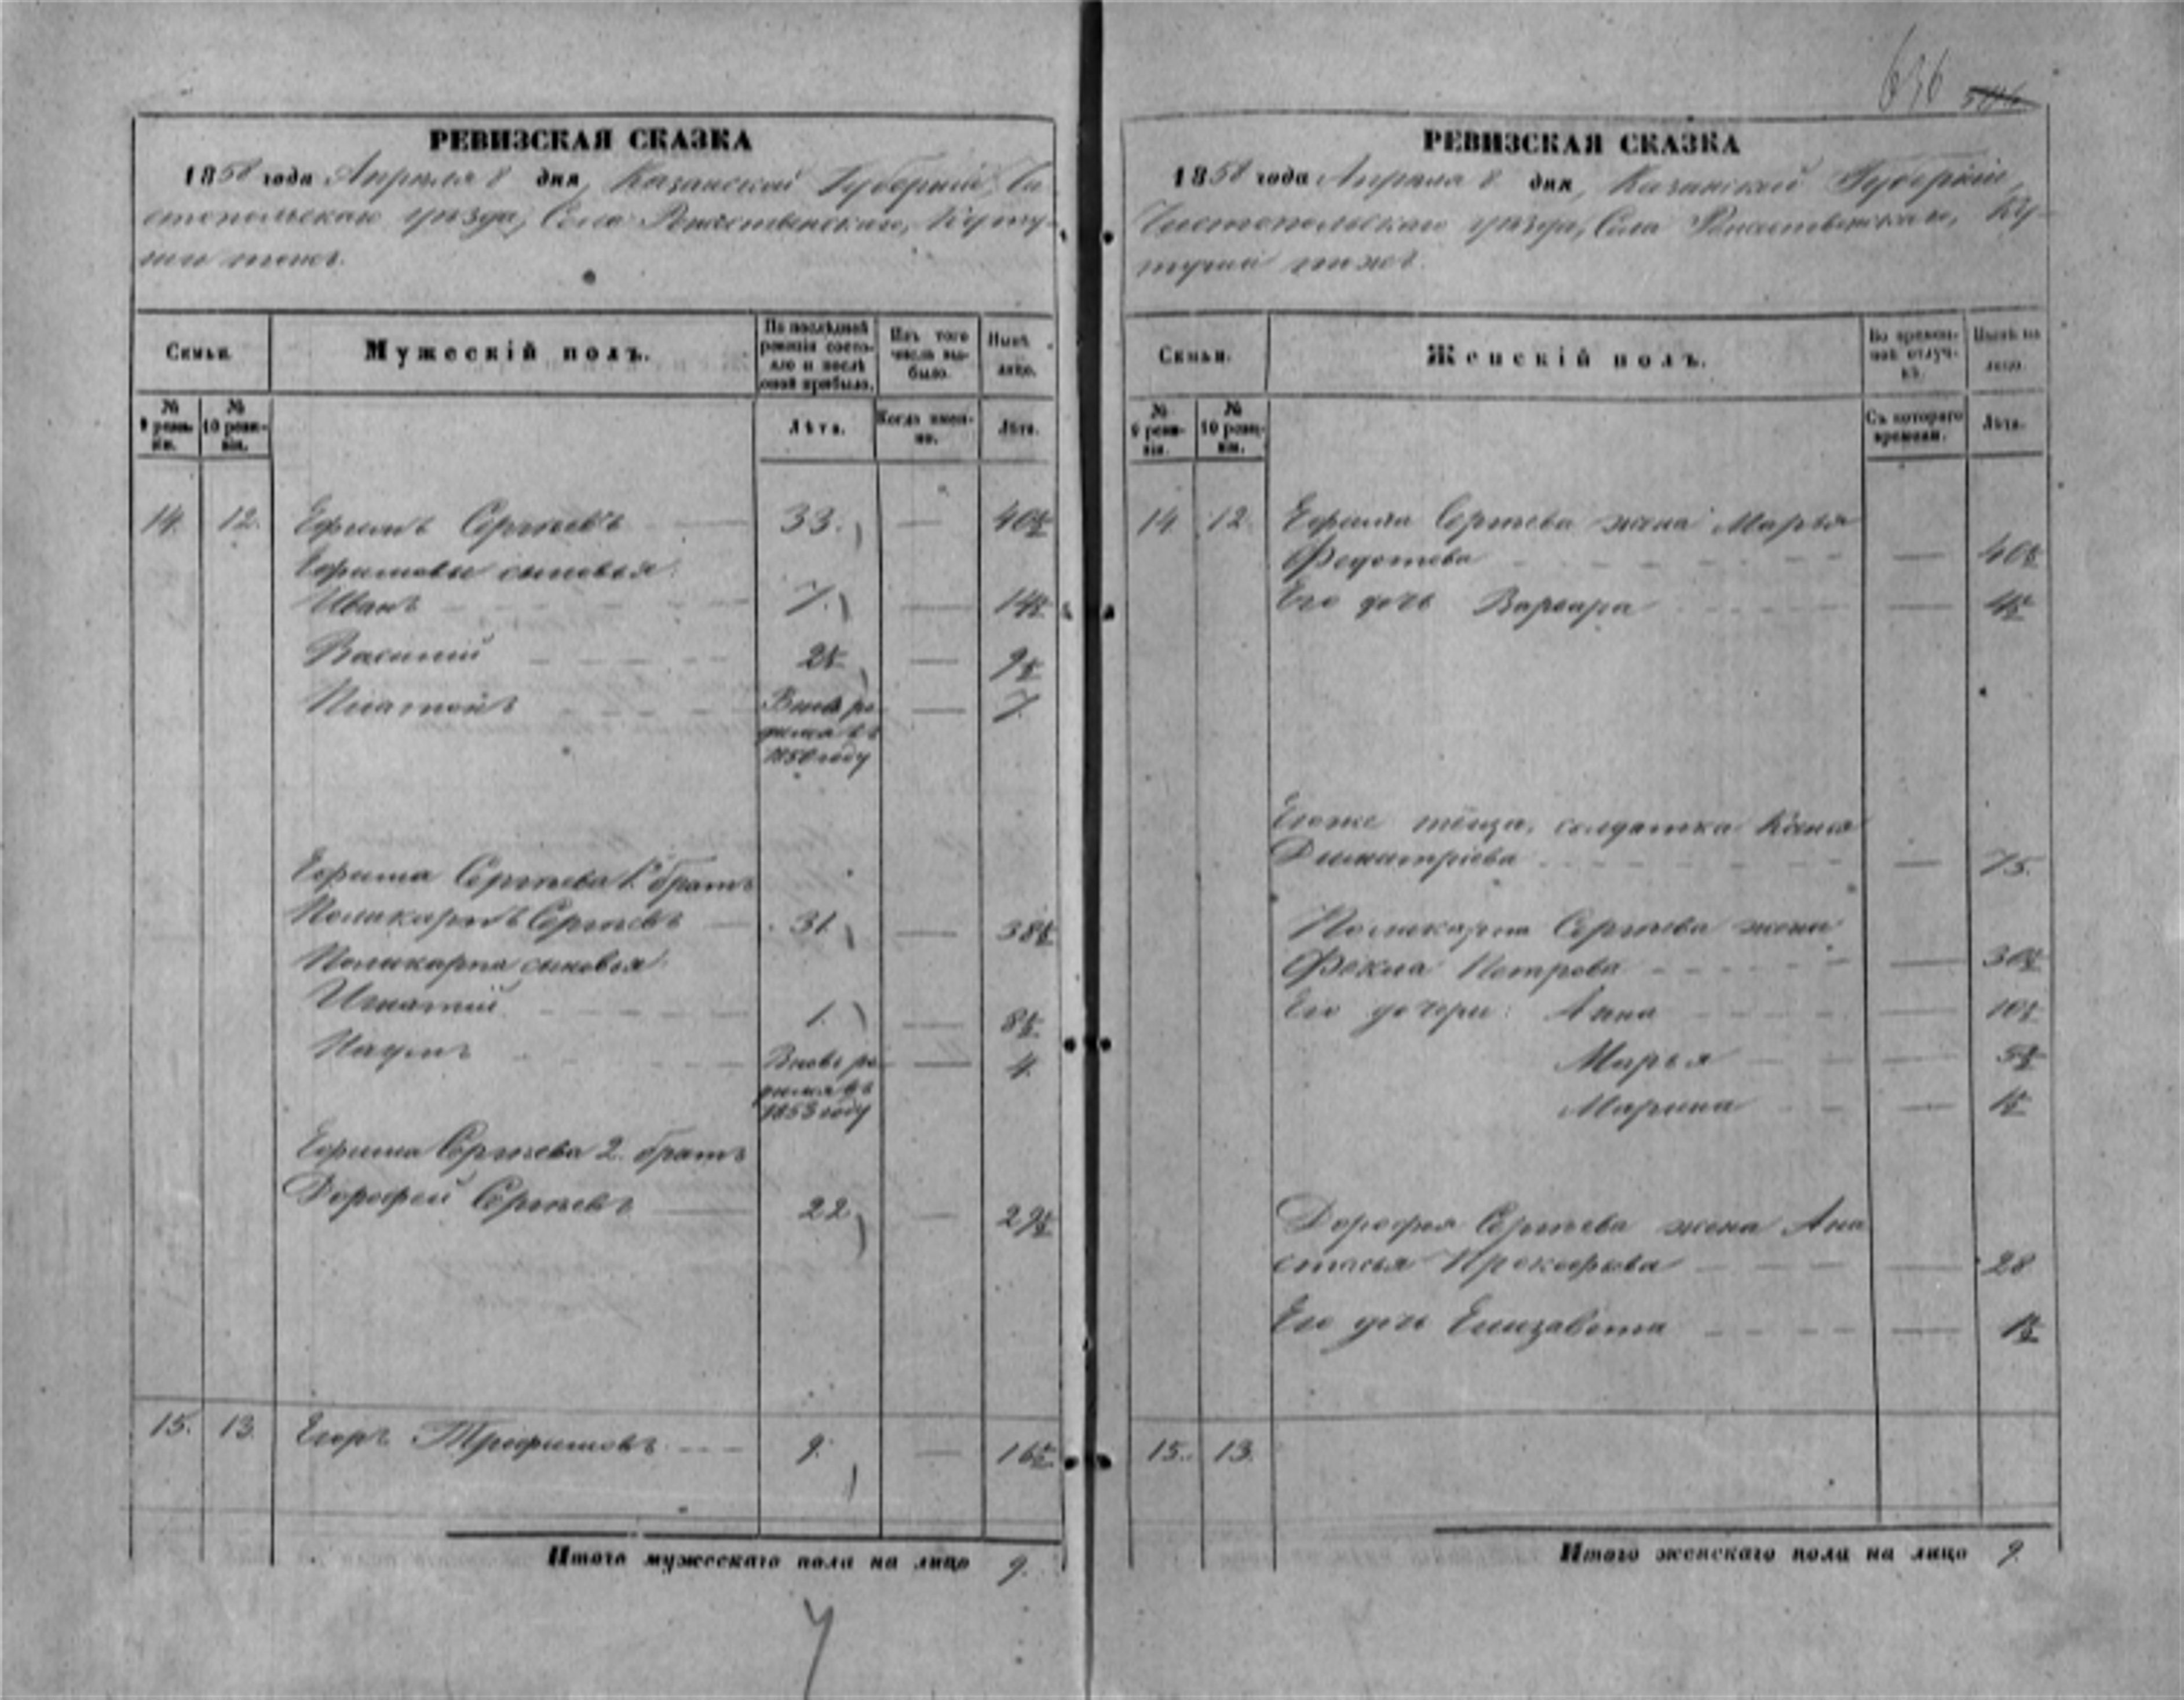 636 506
РЕВИЗСКАЯ СКАЗКА
1858 года Апреля 8 дня, Казанской Губернiи, Чи-
стопольскаго уѣзда, Села Рожественскаго,
тожъ.
Семьи.
Мужескiй полъ.
По послѣдней ревизiи состояло и послѣ оной прибыло.
Изъ того числа выбыло.
Нынѣ лицо.
№ 9 ревизiи.
№ 10 ревизiи.
Лѣта.
Когда именно.
Лѣта.
14. 12. Ефимъ Сергѣевъ 33. 40½
Ефимовы сыновья:
Иванъ 7. 14½
Василiй 2½ 9½
Платонъ Вновь ро- 7.
дился въ
1850 году
Ефима Сергѣева 1й братъ
Поликарпъ Сергѣевъ 31. 38½
Поликарпа сыновья:
Игнатiй 1. 8½
Наумъ Вновь ро- 4.
дился въ
1853 году
Ефима Сергѣева 2. братъ
Дорофей Сергѣевъ 22. 29½
15. 13. Егоръ Трофимовъ 9. 16½
Итого мужескаго пола на лицо 9.
РЕВИЗСКАЯ СКАЗКА
1858 года Апреля 8 дня, Казанской Губернiи,
Чистопольскаго уѣзда, Села Рожественскаго,
тожъ.
Семьи.
Женскiй полъ.
Во временной отлучкѣ.
Нынѣ на лицо.
№ 9 ревизiи.
№ 10 ревизiи.
Съ котораго времени.
Лѣта.
14. 12. Ефима Сергѣева жена Марья
Федотева 40½
Его дочь Варвара 4½
Егоже тёща, солдатка Ксенья
Димитрiева 75.
Поликарпа Сергѣева жена
Фекла Петрова 30½
Его дочери: Анна 10½
Марья 5½
Марина 1½
Дорофея Сергѣева жена Ана
стасья Прокофьева 28
Его дочь Елизавета 1½
15. 13.
Итого женскаго пола на лицо 9.